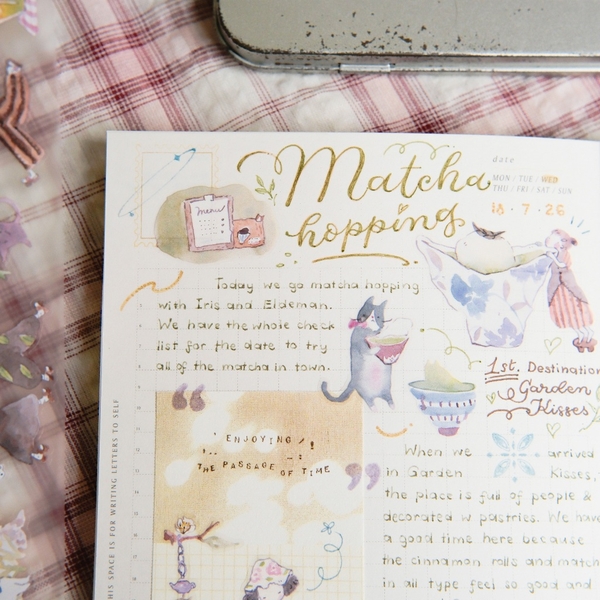 Matcha
hopping
date
MON / TUE / WED
THU / FRI / SAT / SUN
18 · 7 · 26
menu
Today we go matcha hopping
with Iris and Eldeman.
We have the whole check
list for the date to try
all of the matcha in town.
1st. Destination
Garden
Kisses
"
ENJOYING
THE PASSAGE OF TIME
"
When we arrived
in Garden Kisses,
the place is full of people &
decorated w pastries. We have
a good time here because
the cinnamon rolls and match
in all type feel so good and
THIS SPACE IS FOR WRITING LETTERS TO SELF